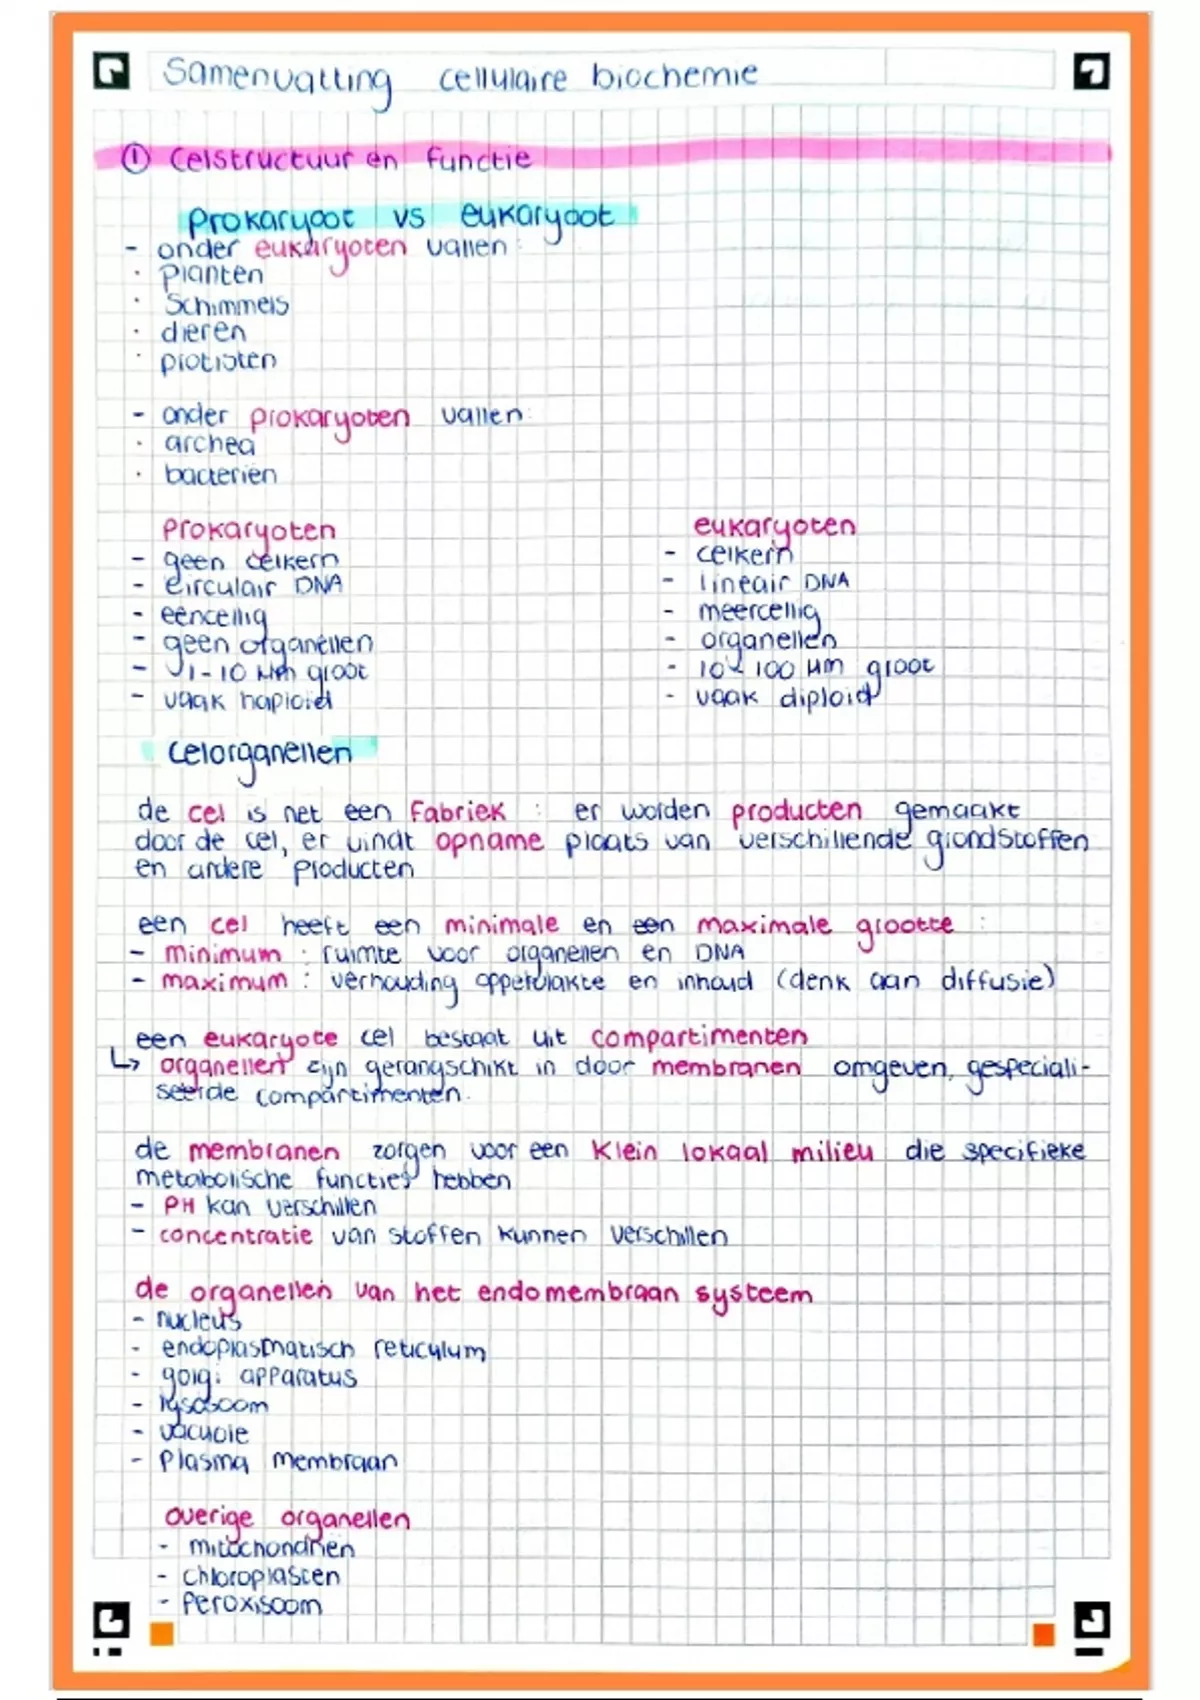 Samenvatting cellulaire biochemie
① Celstructuur en functie
Prokaryoot vs eukaryoot
- onder eukaryoten vallen:
· planten
· Schimmels
· dieren
· protisten
- onder prokaryoten vallen:
· archea
· bacteriën
Prokaryoten
- geen celkern
- circulair DNA
- eencellig
- geen organellen
- 1-10 µm groot
- vaak haploïd
eukaryoten
- celkern
- lineair DNA
- meercellig
- organellen
- 10-100 µm groot
- vaak diploïd
Celorganellen
de cel is net een fabriek : er worden producten gemaakt
door de cel, er vindt opname plaats van verschillende grondstoffen
en andere producten
een cel heeft een minimale en een maximale grootte :
- minimum : ruimte voor organellen en DNA
- maximum : verhouding oppervlakte en inhoud (denk aan diffusie)
een eukaryote cel bestaat uit compartimenten
↳ organellen zijn gerangschikt in door membranen omgeven, gespeciali-
seerde compartimenten.
de membranen zorgen voor een klein lokaal milieu die specifieke
metabolische functies hebben
- PH kan verschillen
- concentratie van stoffen kunnen verschillen
de organellen van het endomembraan systeem
- nucleus
- endoplasmatisch reticulum
- golgi apparatus
- lysosoom
- vacuole
- Plasma membraan
overige organellen
- mitochondriën
- chloroplasten
- Peroxisoom